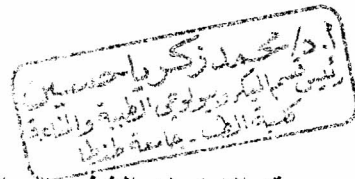 أ.د/محمد زكريا حسين
رئيس قسم الميكروبيولوجى الطبية والمناعة
كلية الطب - جامعة طنطا